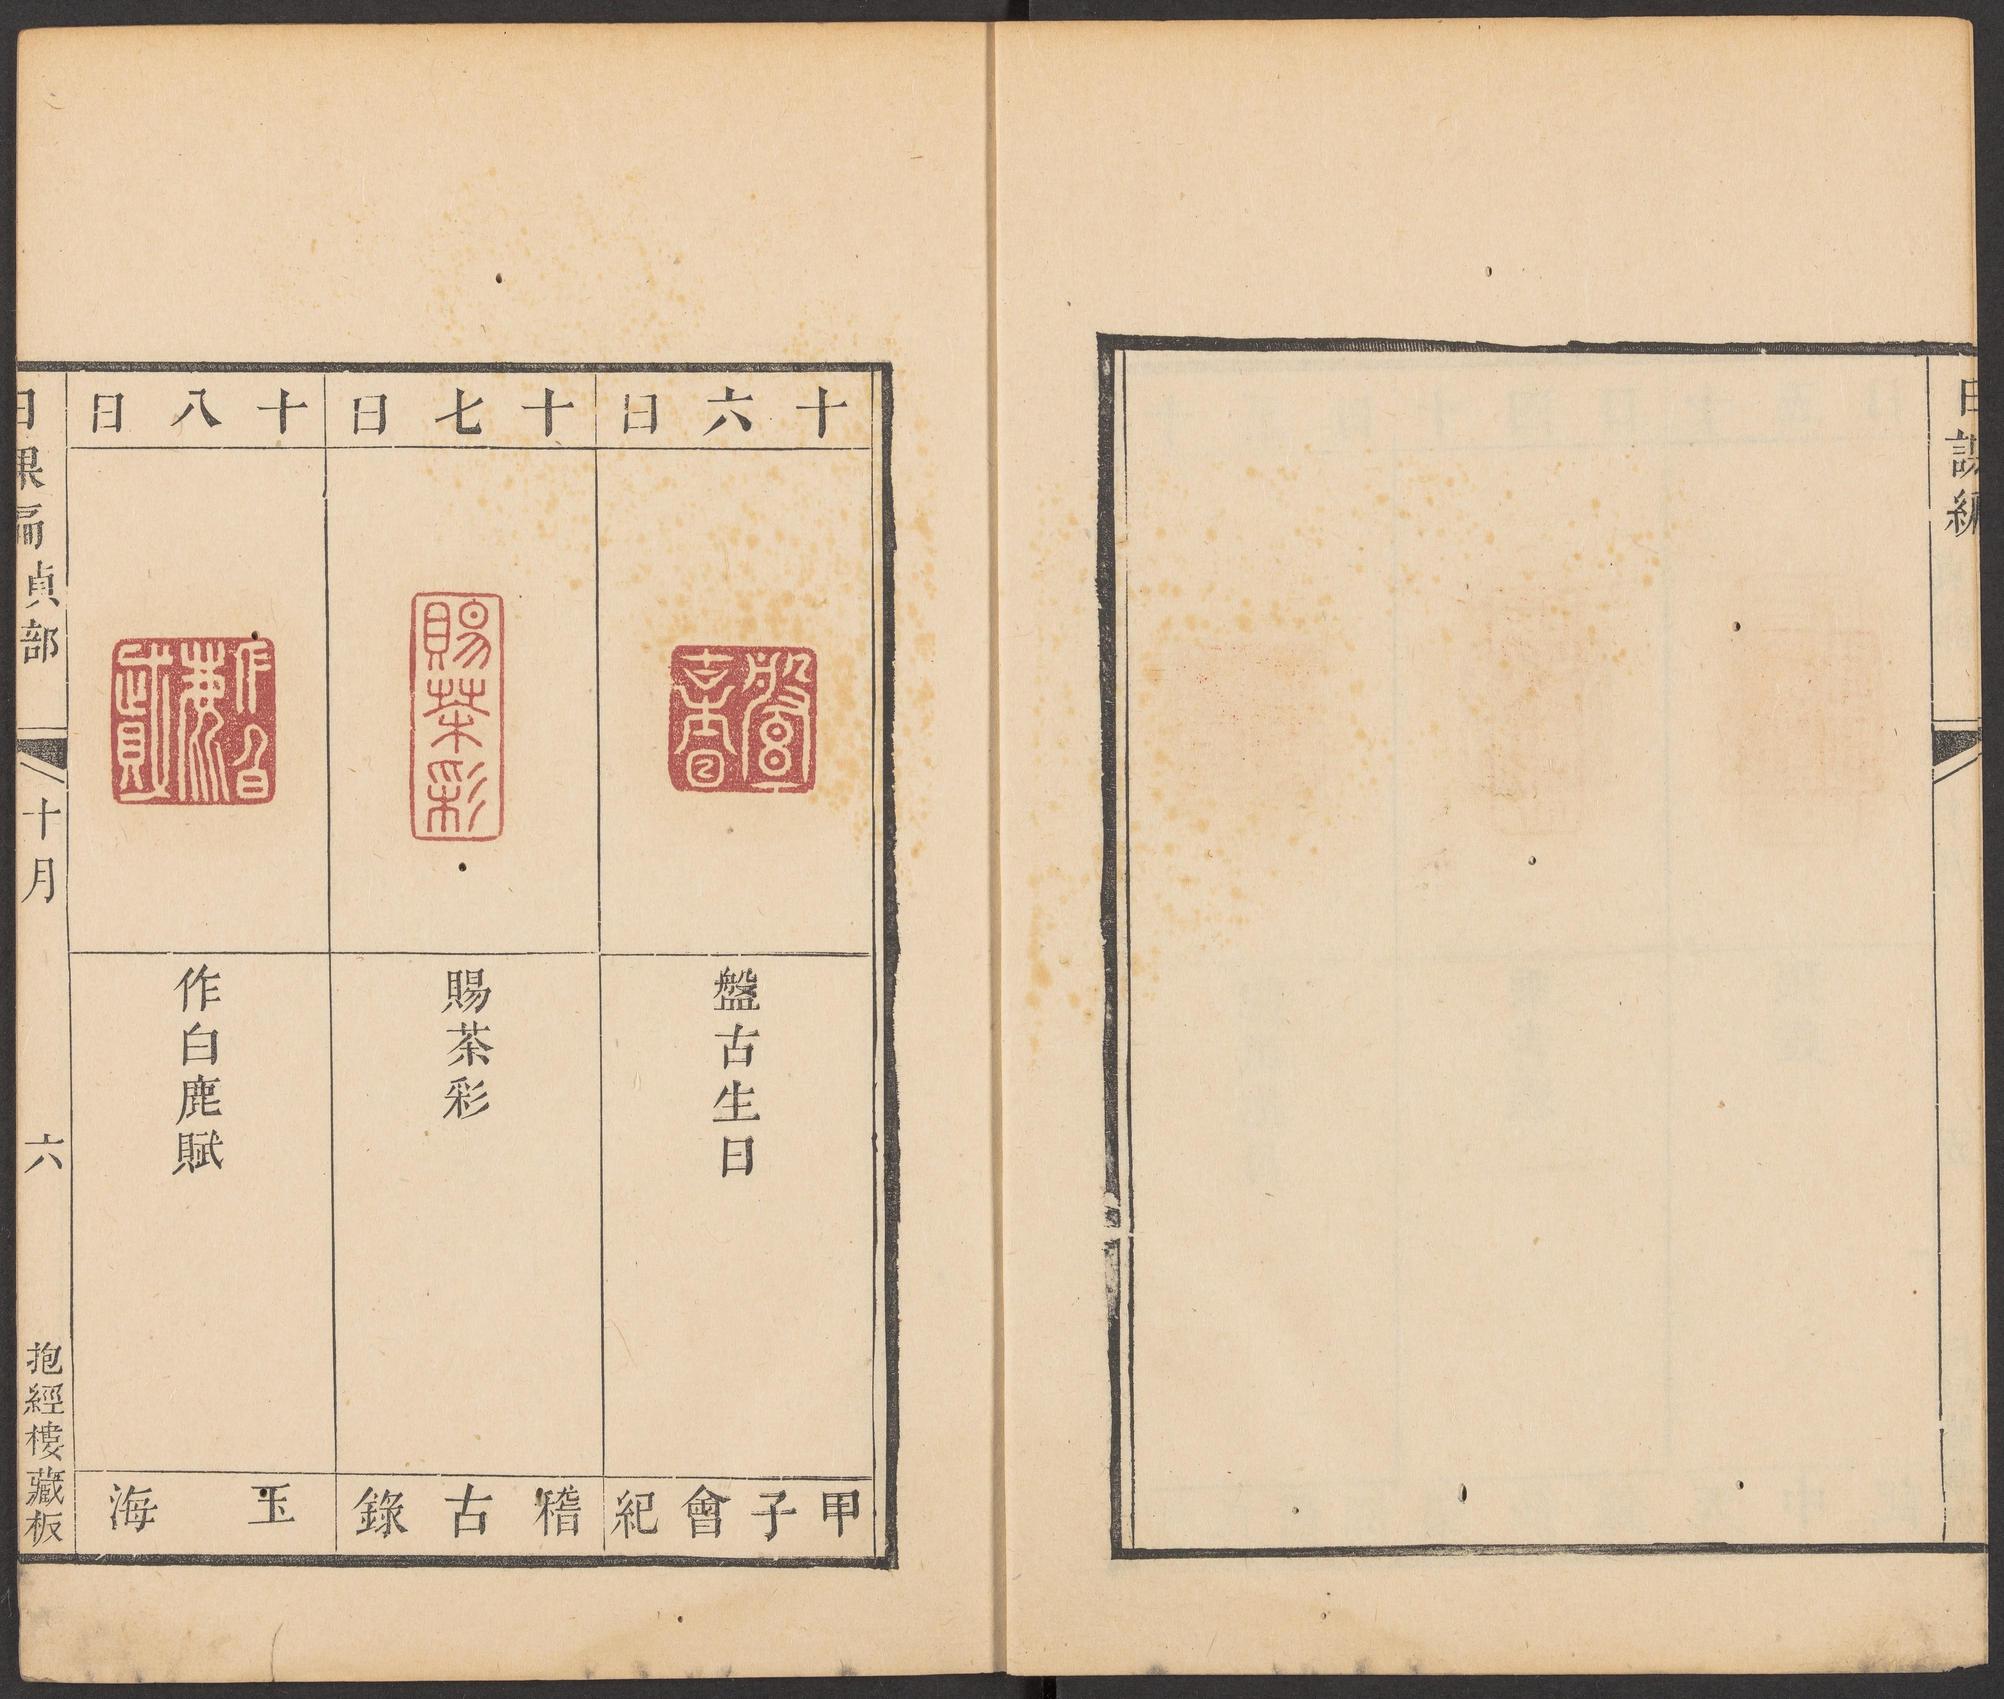 日課編
十六日
盤古生日
盤古生日
甲子會紀
十七日
賜茶彩
賜茶彩
稽古錄
十八日
作白鹿賦
作白鹿賦
玉海
日課編貞部
十月
六
抱經樓藏板